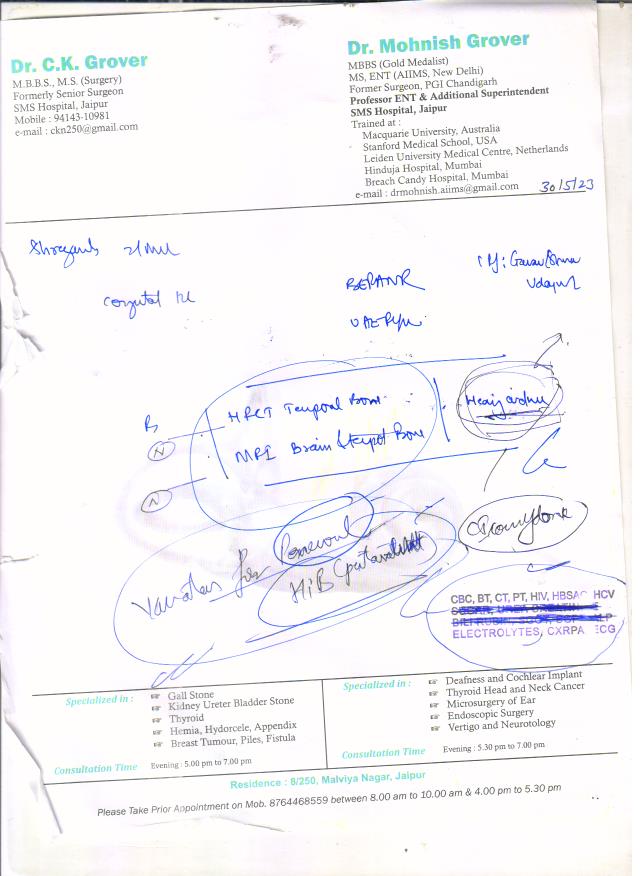 Dr. C.K. Grover
M.B.B.S., M.S. (Surgery)
Formerly Senior Surgeon
SMS Hospital, Jaipur
Mobile : 94143-10981
e-mail : ckn250@gmail.com
Dr. Mohnish Grover
MBBS (Gold Medalist)
MS, ENT (AIIMS, New Delhi)
Former Surgeon, PGI Chandigarh
Professor ENT & Additional Superintendent
SMS Hospital, Jaipur
Trained at :
Macquarie University, Australia
Stanford Medical School, USA
Leiden University Medical Centre, Netherlands
Hinduja Hospital, Mumbai
Breach Candy Hospital, Mumbai
e-mail : drmohnish.aiims@gmail.com
30/5/23
Udaipur
HRCT Temporal Bone
MRI Brain & Bone
N
N
HiB
CBC, BT, CT, PT, HIV, HBSAG HCV
ELECTROLYTES, CXRPA ECG
Specialized in :
Gall Stone
Kidney Ureter Bladder Stone
Thyroid
Hernia, Hydorcele, Appendix
Breast Tumour, Piles, Fistula
Consultation Time Evening : 5.00 pm to 7.00 pm
Specialized in :
Deafness and Cochlear Implant
Thyroid Head and Neck Cancer
Microsurgery of Ear
Endoscopic Surgery
Vertigo and Neurotology
Consultation Time Evening : 5.30 pm to 7.00 pm
Residence : 8/250, Malviya Nagar, Jaipur
Please Take Prior Appointment on Mob. 8764468559 between 8.00 am to 10.00 am & 4.00 pm to 5.30 pm